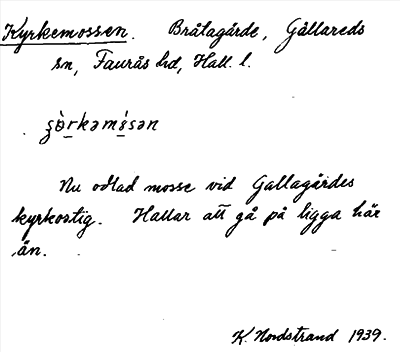 Kyrkemossen. Bråtagärde, Gällareds
sn, Faurås hd, Hall. l.
Nu odlad mosse vid Gallagärdes
kyrkostig. Hallar att gå på ligga här
än.
K. Nordstrand 1939.